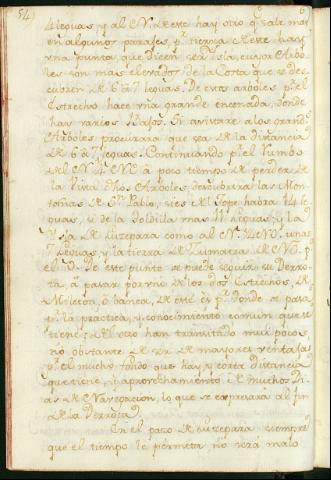 54)
leguas, y al N. de este hay otro q. sale mas
en algunos parajes, p.r tierra de este hay
vna punta, que dicen ser Isla, cuyos Arbo-
les son mas elevados de la Costa que se des-
cubren de 6 a 7 leguas. De estos arboles p.r el
Estrecho hace vna grande encenada, donde
hay varios Bajos. Si avistare a los grand.s
Arboles procurara que sea de la distancia
de 6 a 7 leguas. Continuando p.r el Rumbo
del N. 4 NE a poco tiempo de perder de
la vista dhos Arboles descubrira las Mon-
tañas de S.n Pablo, si es del Tope habra 14 le-
guas, si de la Toldilla mas 11 leguas, y la
Ysla de Luzepara como al N. 4 NO, unas
7 leguas, y la tierra de Zumatra de NO. p.r
el O. De este punto se puede seguir su Derro-
ta, a pasar por vno de los dos Estrechos, de
o banca, de este es p.r donde se pasa
p.r la practica, y conocimiento comun que se
tiene; del otro han transitado mui pocos
no obstante de ser de mayores ventajas
p.r el mucho fondo que hay y corta distancia
que tiene, y aprovechamiento de muchos Di-
as de Navegacion, lo que se expresara al fin
de la Derrota.
En el paso de Luzepara siempre
que el tiempo le permita no sera malo